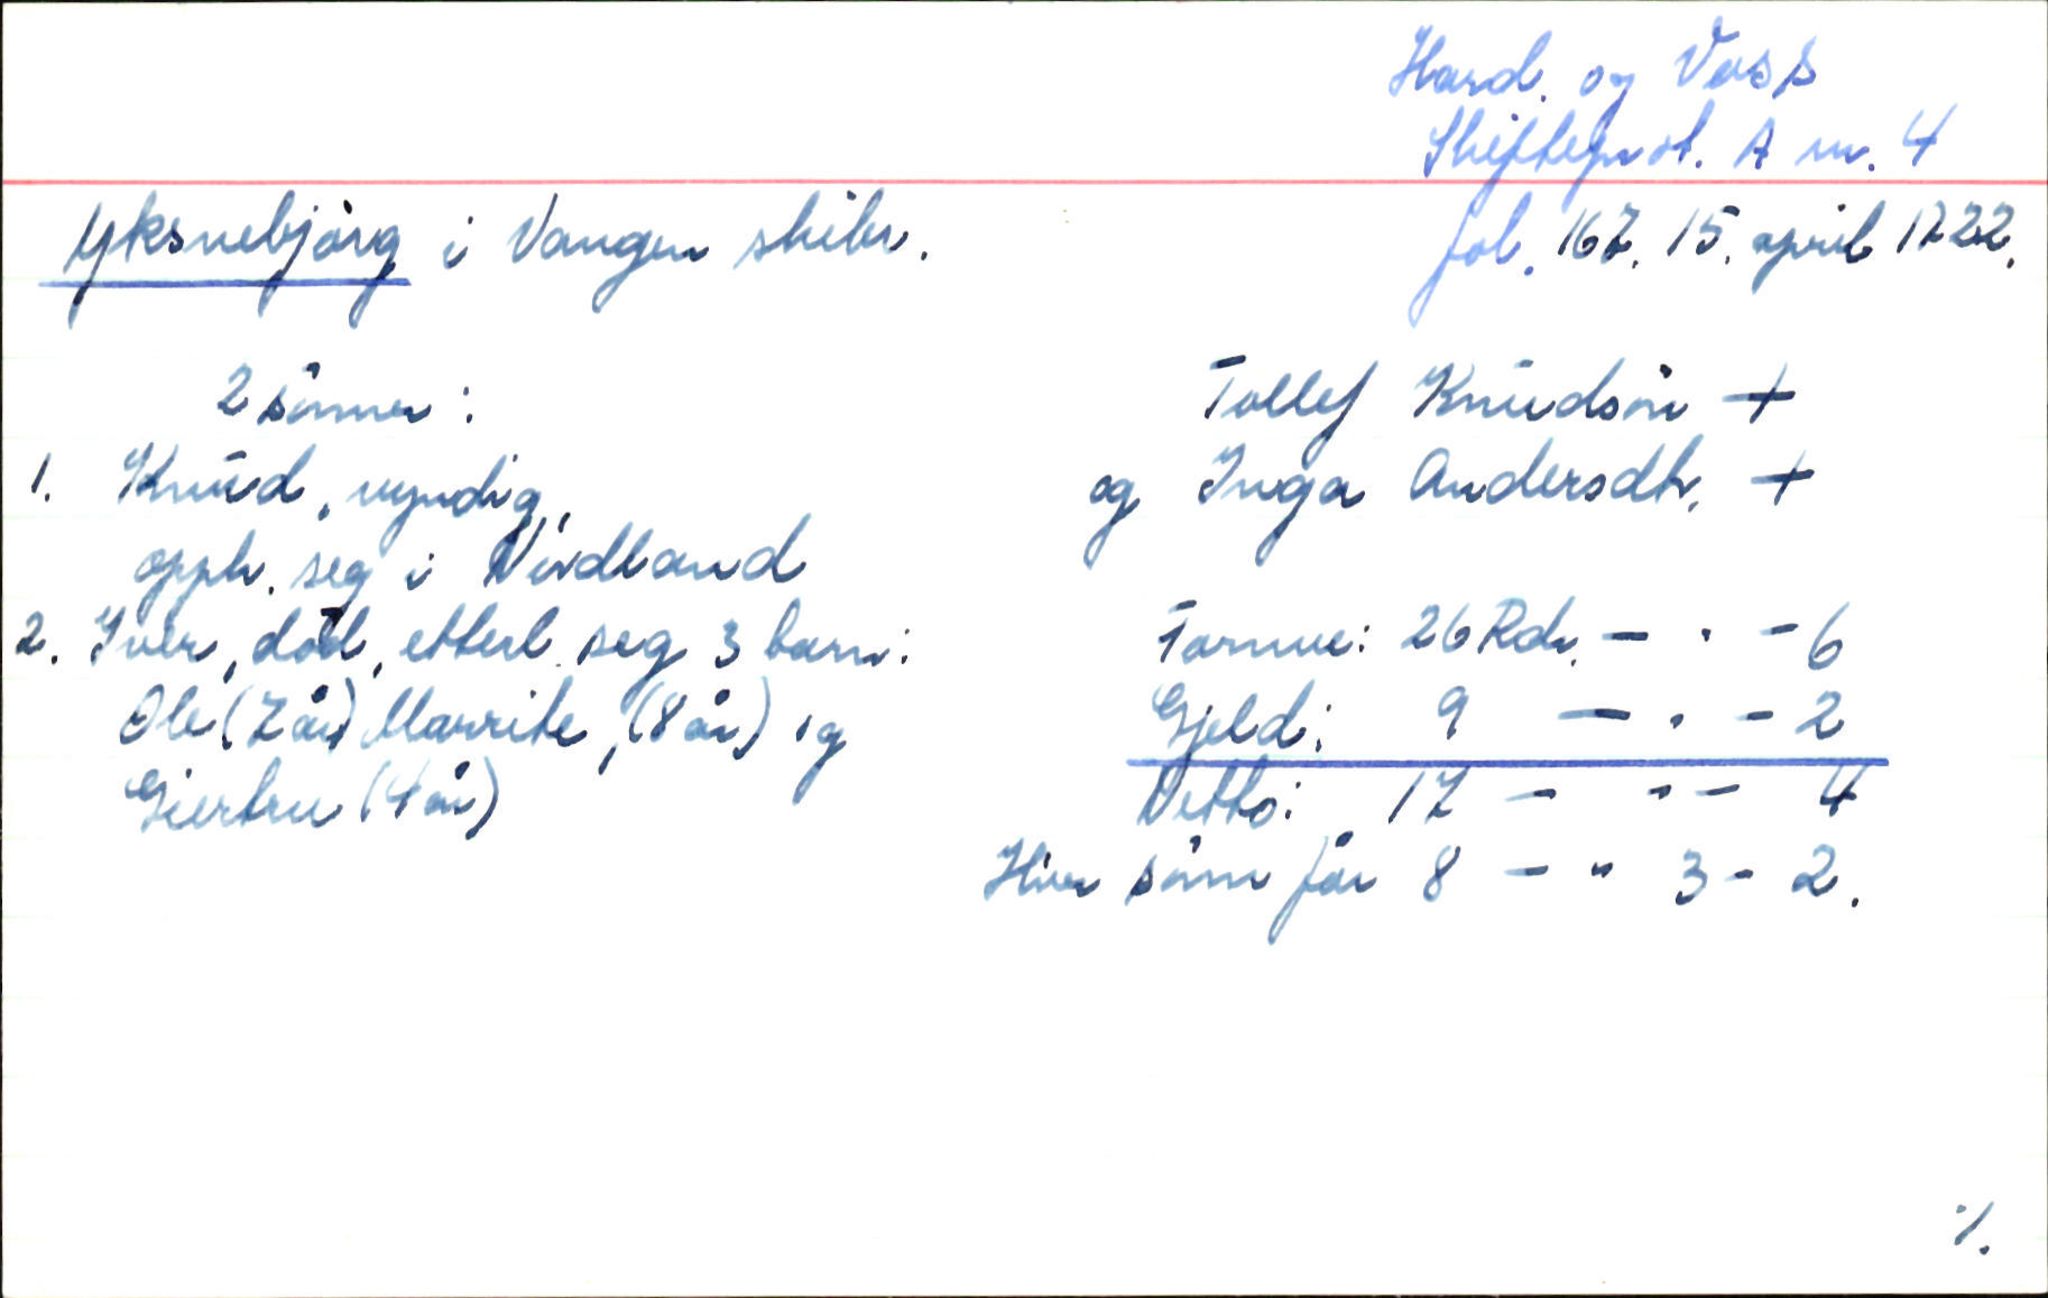 Hard. og Voss
Skifteprot. A nr. 4
fol. 167. 15. april 1722.
Yksnebjørg i Vangen skibr.
2 sønner:
1. Knud, myndig,
opph. seg i Nordland
2. Iver, død, etterl. seg 3 barn:
Ole (7 år) Marrite, (8 år) og
Giertru (4 år)
Tollef Knudsøn +
og Inga Andersdtr. +
Formue: 26 Rdr. - " - 6
Gjeld: 9 - " - 2
Netto: 17 - " - 4
Hver sønn får 8 - " 3 - 2.
%.